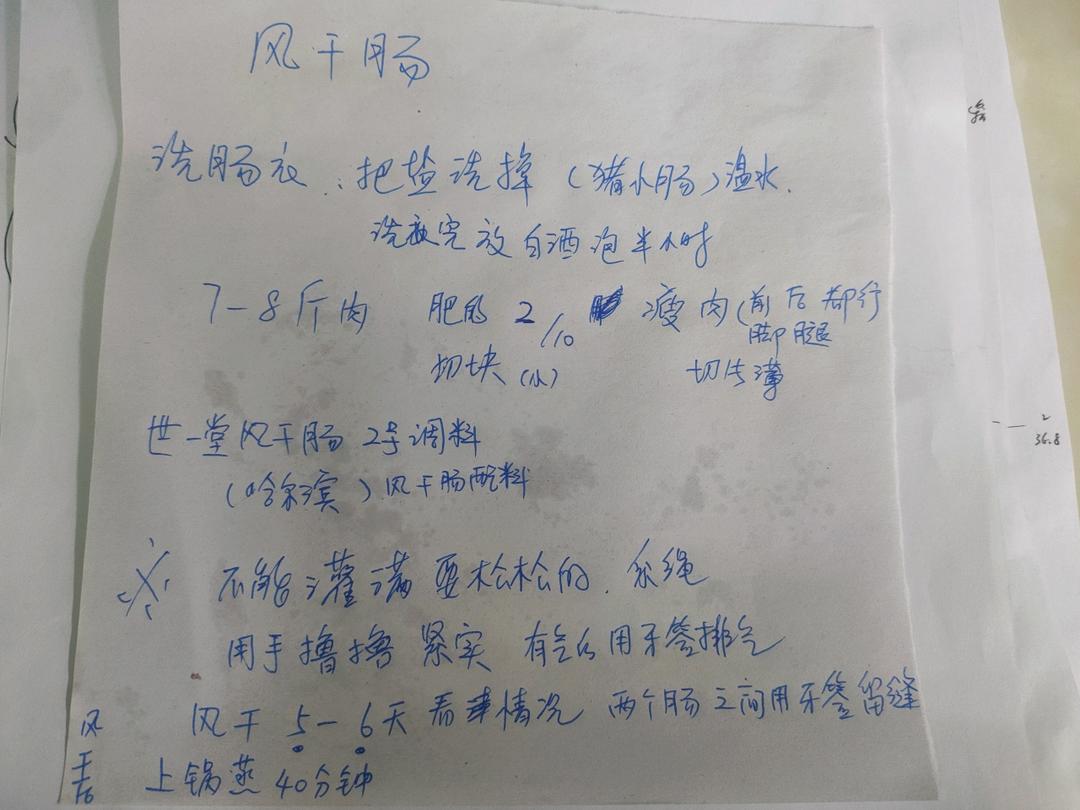 风干肠
洗肠衣：把盐洗掉（猪小肠）温水.
洗完放白酒泡半小时
7-8斤肉 肥的2/10 瘦肉（前后都行
脚腿
切块（小） 切片薄
世一堂风干肠2号调料
（哈尔滨）风干肠配料
※ 不能灌满要松松的. 系绳
用手撸撸紧实 有气的用牙签排气
风干5-6天看情况 两个肠之间用牙签留缝
风干后 上锅蒸40分钟
2
36.8